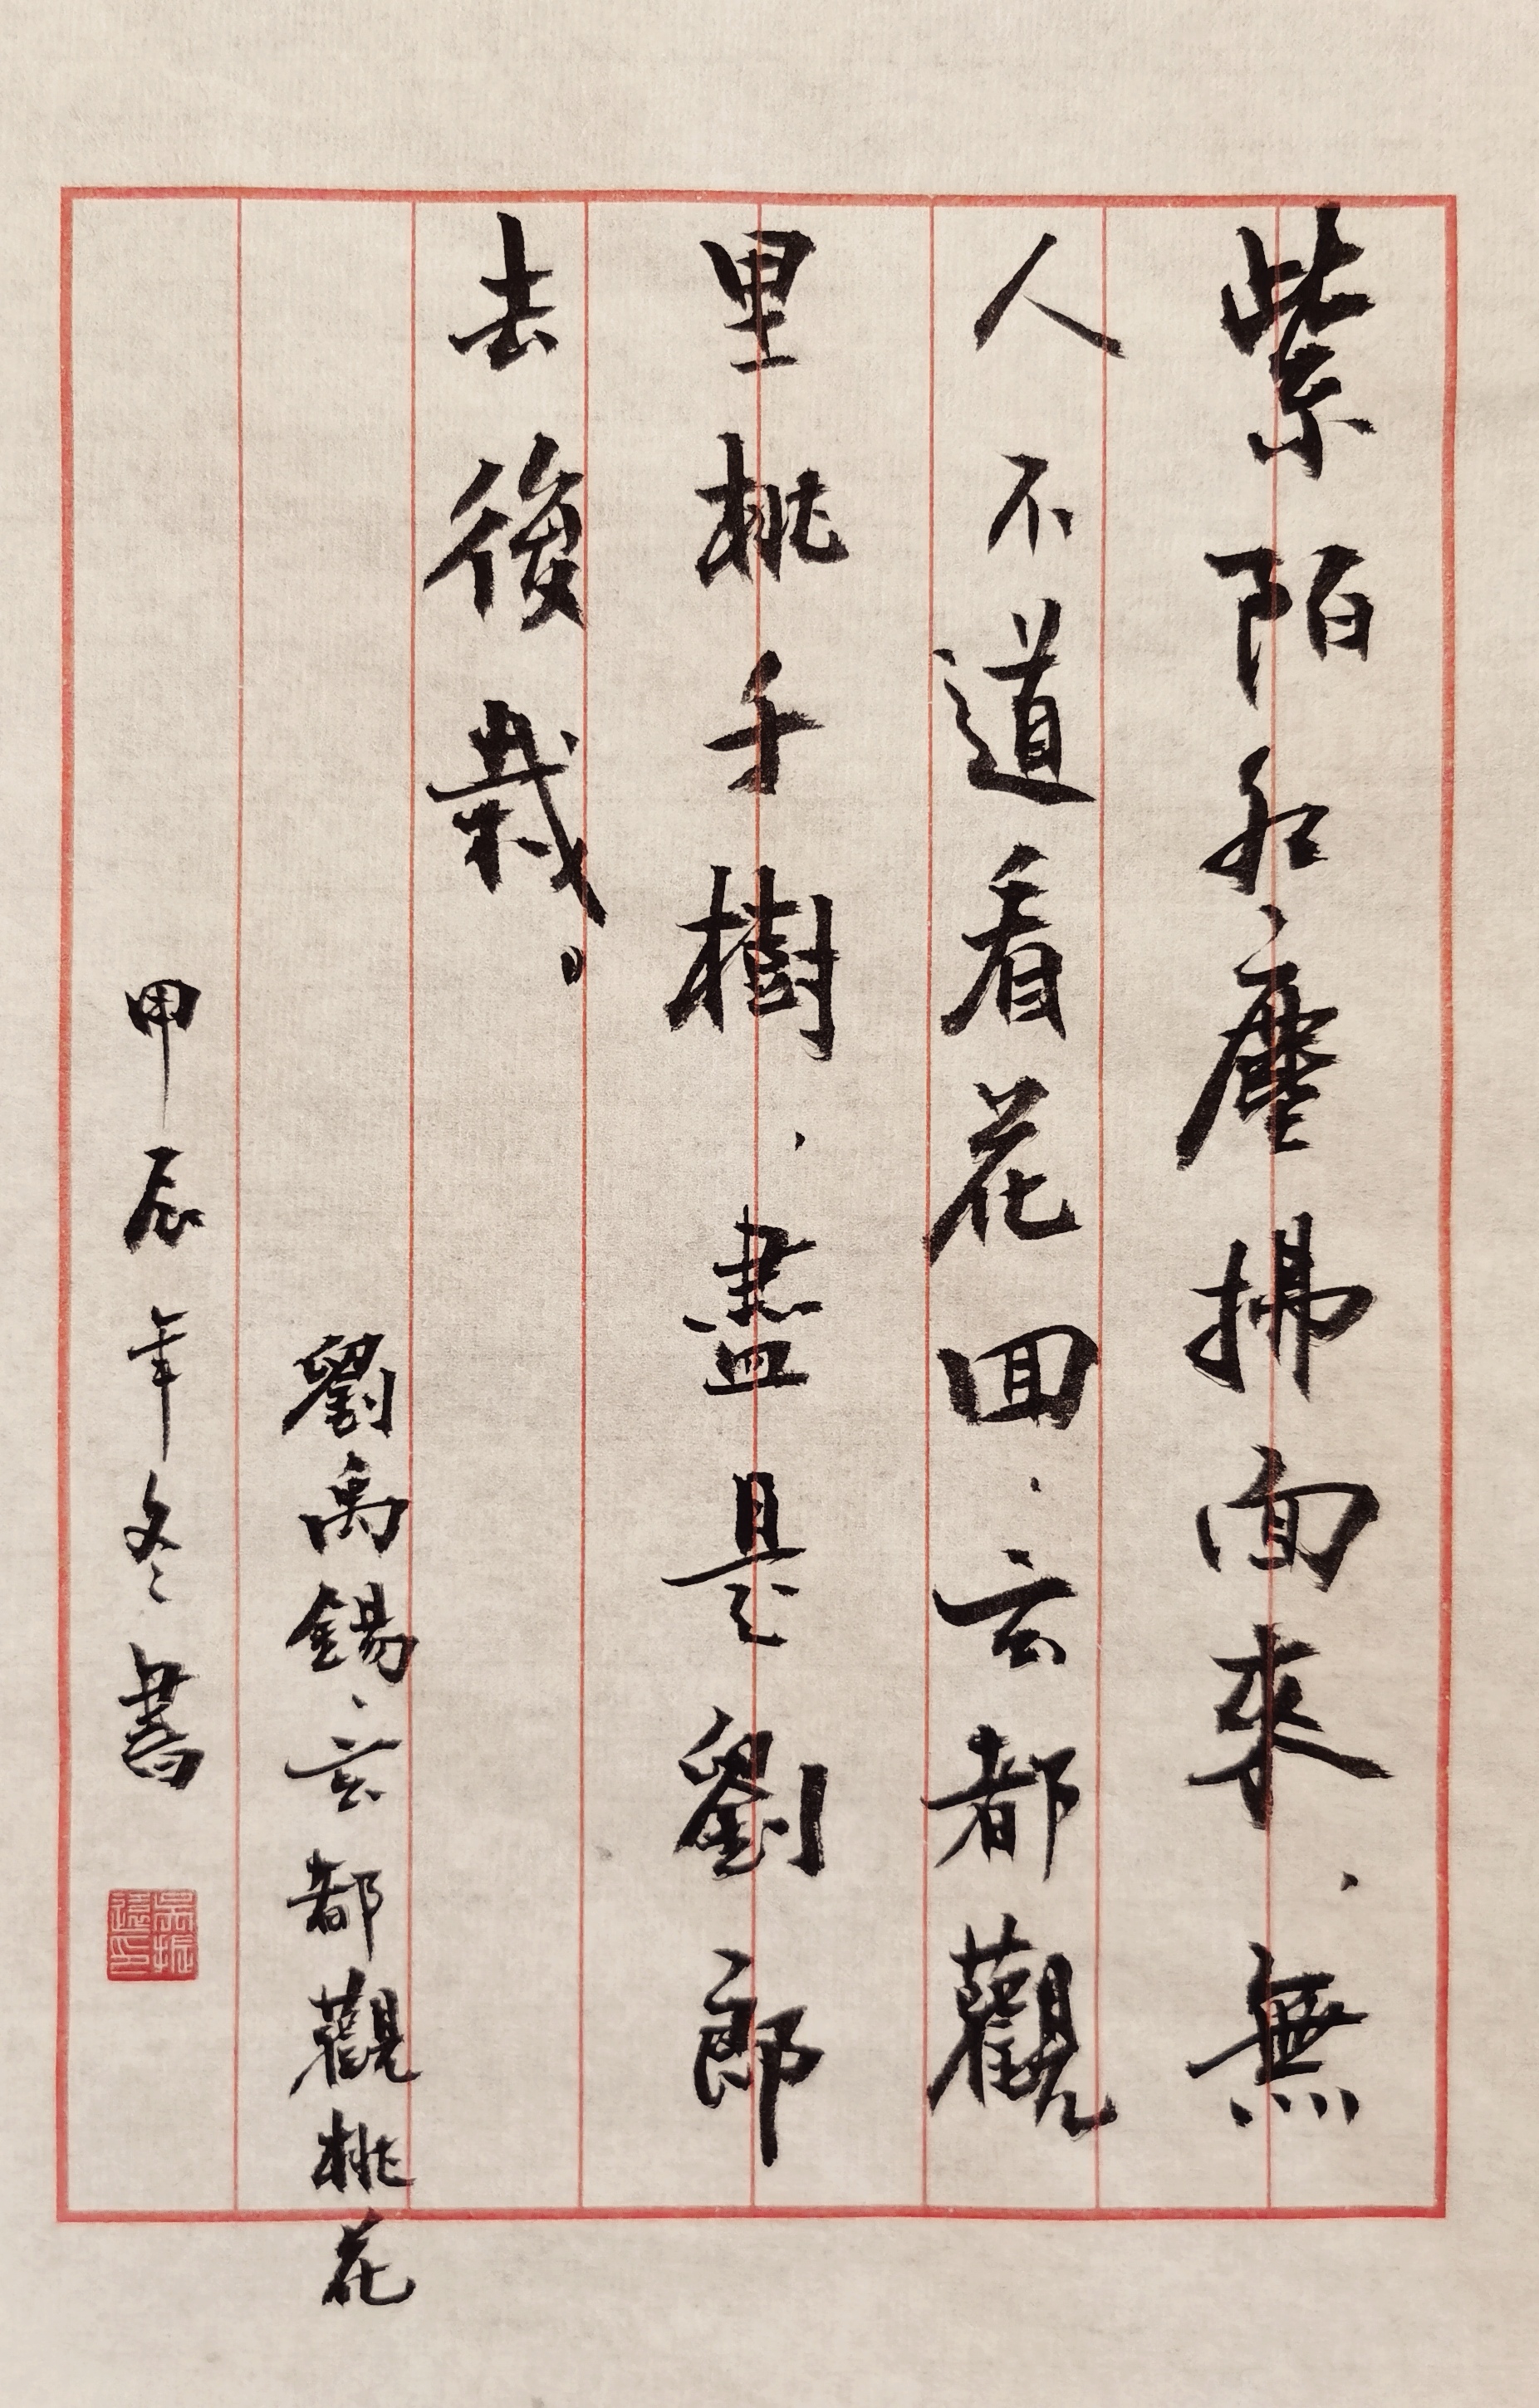 紫陌紅塵拂面來、無
人不道看花回、玄都觀
里桃千樹、盡是劉郎
去後栽。
劉禹錫、玄都觀桃花
甲辰年冬書
吳振
遠印